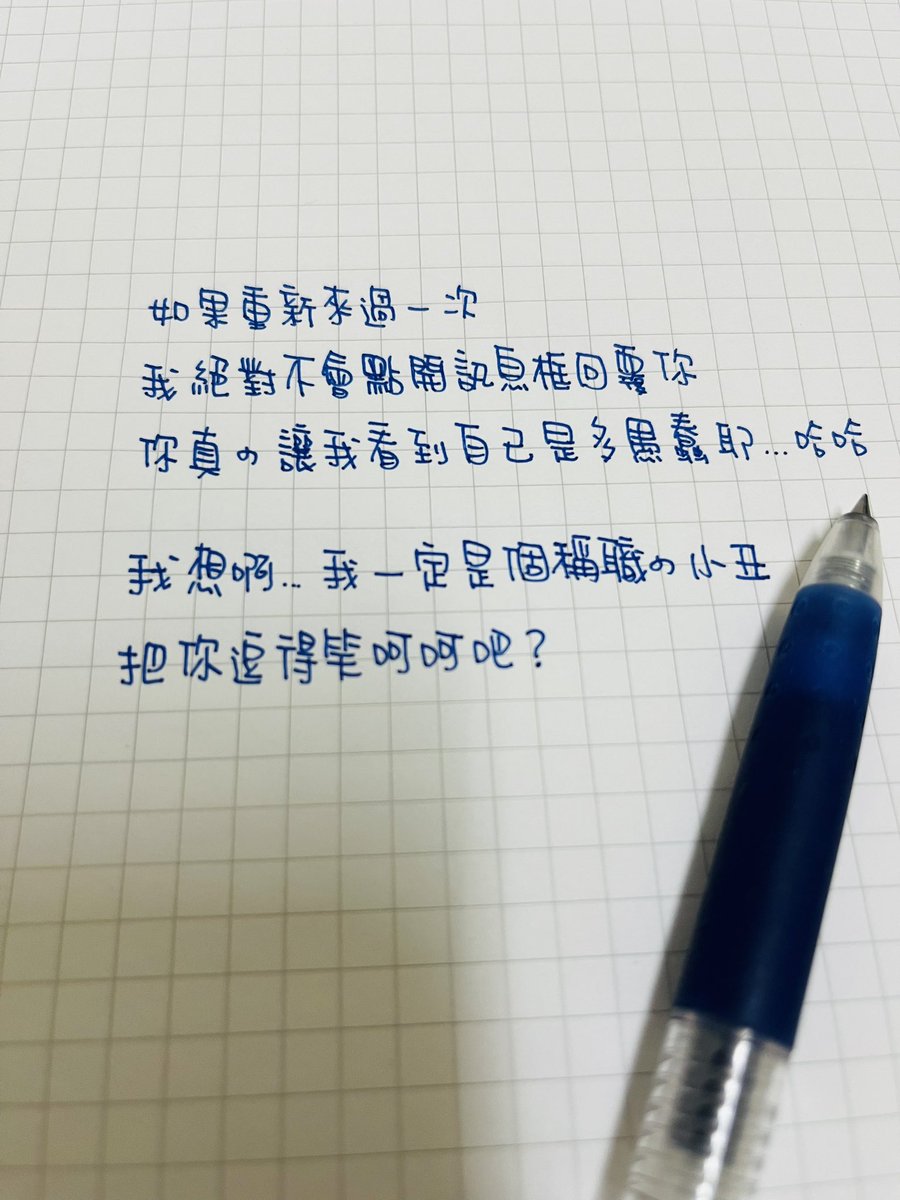 如果重新來過一次
我絕對不會點開訊息框回覆你
你真の讓我看到自己是多愚蠢耶...哈哈
我想啊... 我一定是個稱職の小丑
把你逗得笑呵呵吧?